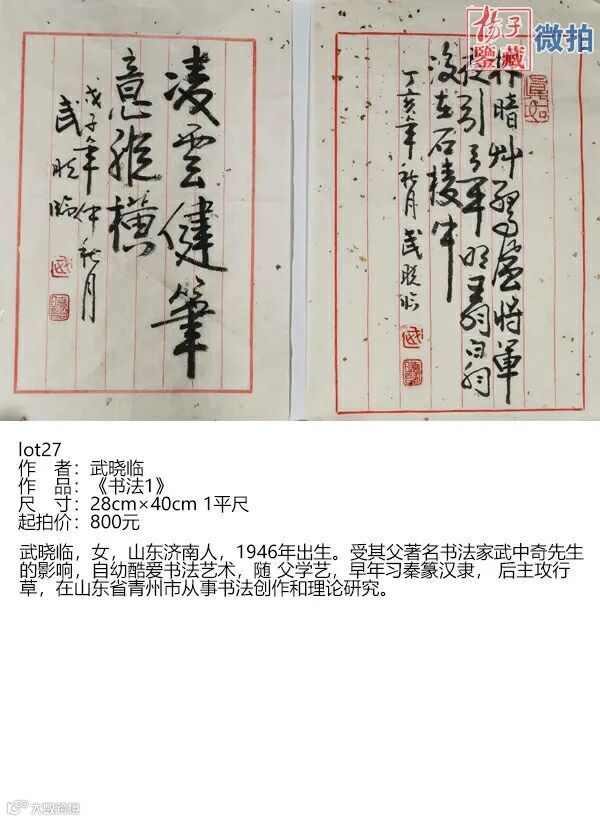 杨子
鑒藏
微拍
凌雲健筆
意縱橫
戊子年仲秋月
武晓临
林暗艸驚風將軍
夜引弓平明尋白羽
沒在石棱中
丁亥年秋月武晓临
lot27
作 者：武晓临
作 品：《书法1》
尺 寸：28cm×40cm 1平尺
起拍价：800元
武晓临，女，山东济南人，1946年出生。受其父著名书法家武中奇先生
的影响，自幼酷爱书法艺术，随 父学艺，早年习秦篆汉隶， 后主攻行
草，在山东省青州市从事书法创作和理论研究。
大数跨境